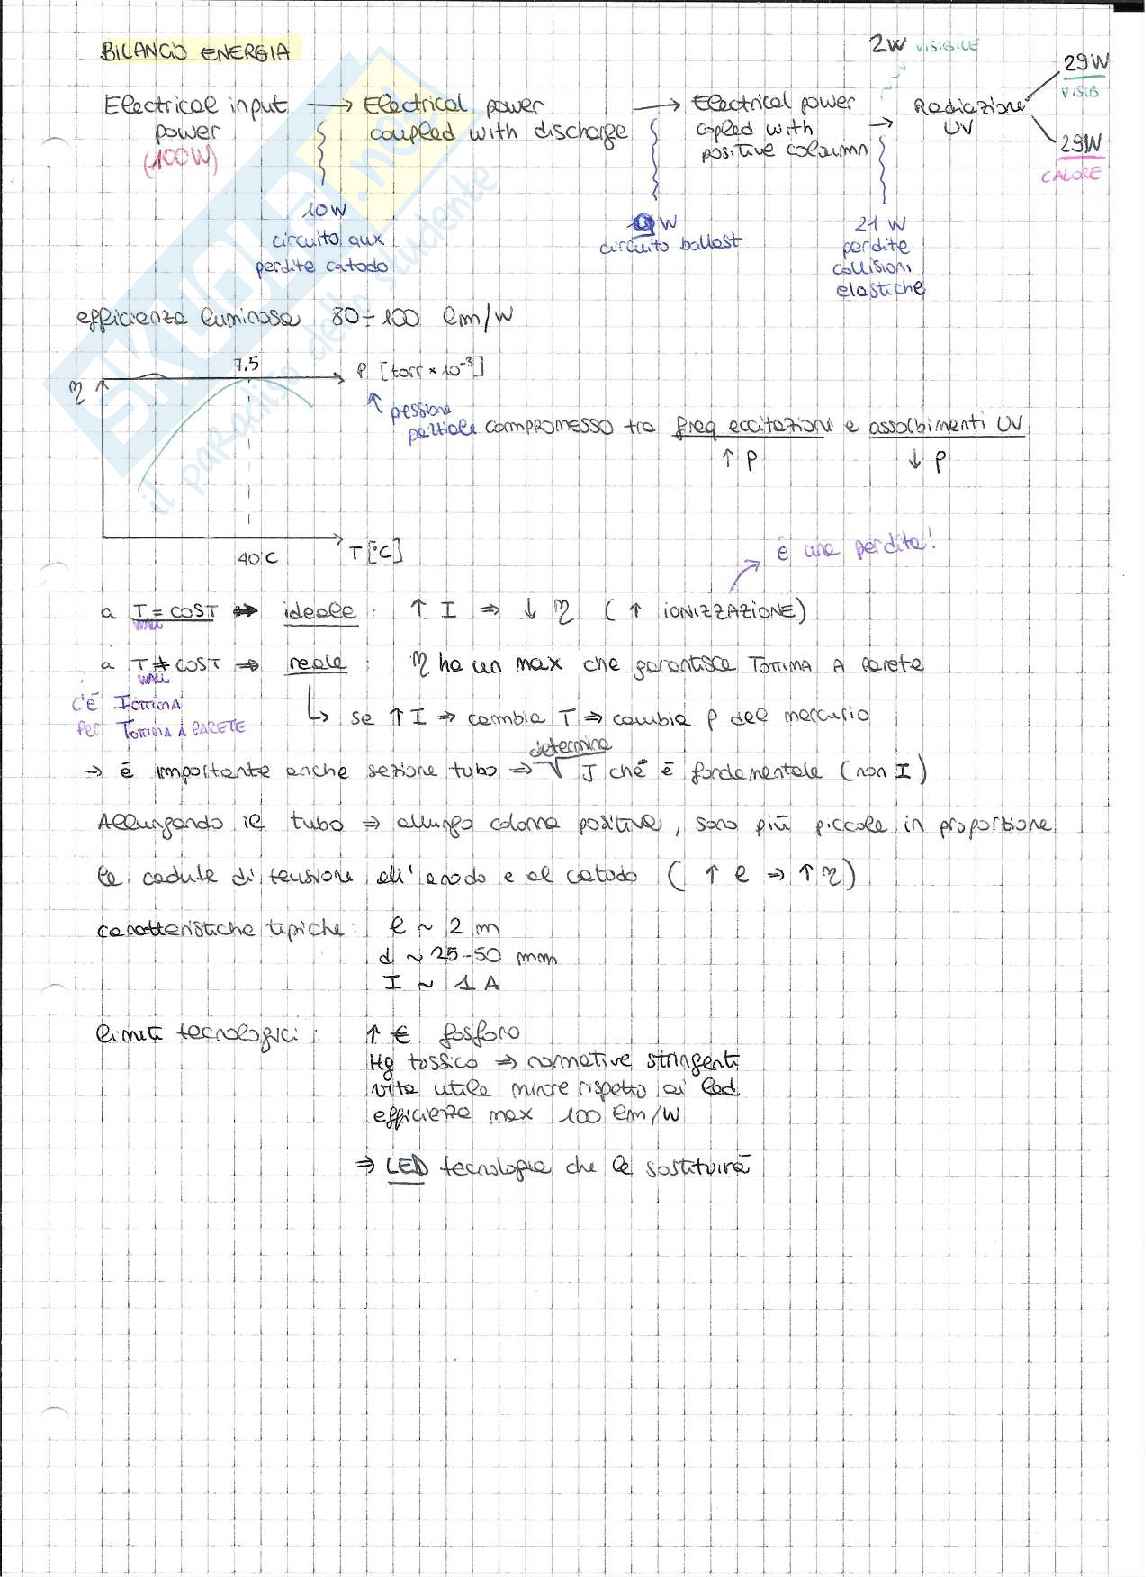 BILANCIO ENERGIA
2W VISIBILE
29W
VISIB
Electrical input power (100W) → Electrical power coupled with discharge → Electrical power copled with positive coloumn → Radiazione UV
29W
CALORE
10W
circuito aux
perdite catodo
W
circuito ballast
21 W
perdite
collisioni
elastiche
efficienza luminosa 80÷100 lm/W
7,5
P [torr × 10⁻³]
η
↑ pessione
parziale
COMPROMESSO tra freq eccitazione e assorbimenti UV
↑ P
↓ P
40°C
T [°C]
è una perdita!
a T = COST ⇒ ideale : ↑ I ⇒ ↓ η ( ↑ IONIZZAZIONE)
WALL
a T ≠ COST ⇒ reale : η ha un max che garantisca TOTTIMA A parete
WALL
C'È IOTTIMA
PER TOTTIMA A PARETE
↳ se ↑ I → cambia T ⇒ cambia p del mercurio
determina
→ è importante anche sezione tubo ⇒ J che è fondamentale (non I)
Allungando il tubo ⇒ allungo colonna positiva, sono più piccole in proporzione
le cadute di tensione all'anodo e al catodo ( ↑ l ⇒ ↑ η)
caratteristiche tipiche: l ~ 2 m
d ~ 25-50 mm
I ~ 1 A
limiti tecnologici: ↑ € fosforo
Hg tossico ⇒ normative stringenti
vita utile minore rispetto ai led
efficienza max 100 lm/W
⇒ LED tecnologia che le sostituirà
SKUOLA.net
il paradiso dello studente